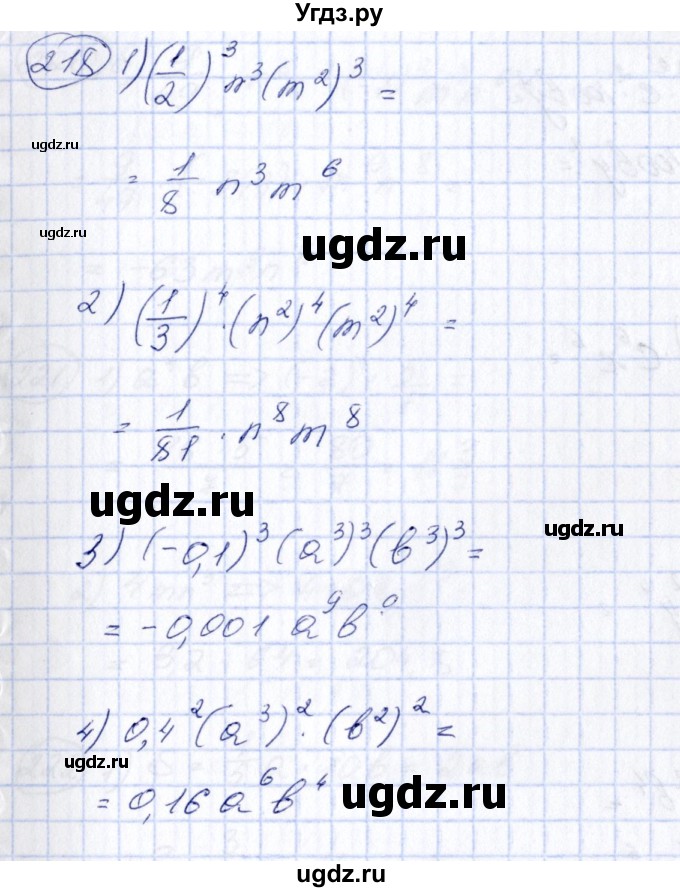 Угдз.ру
218 1) (1/2)³ n³ (m²)³ =
ugdz.ru
= 1/8 n³ m⁶
ugdz.ru
ugdz.ru
2) (1/3)⁴ · (n²)⁴ (m²)⁴ =
= 1/81 · n⁸ m⁸
ugdz.ru
ugdz.ru
3) (-0,1)³ (a³)³ (b³)³ =
= -0,001 a⁹ b
4) 0,4² (a³)² · (b²)² =
ugdz.ru
= 0,16 a⁶ b⁴
ugdz.ru
ugdz.ru